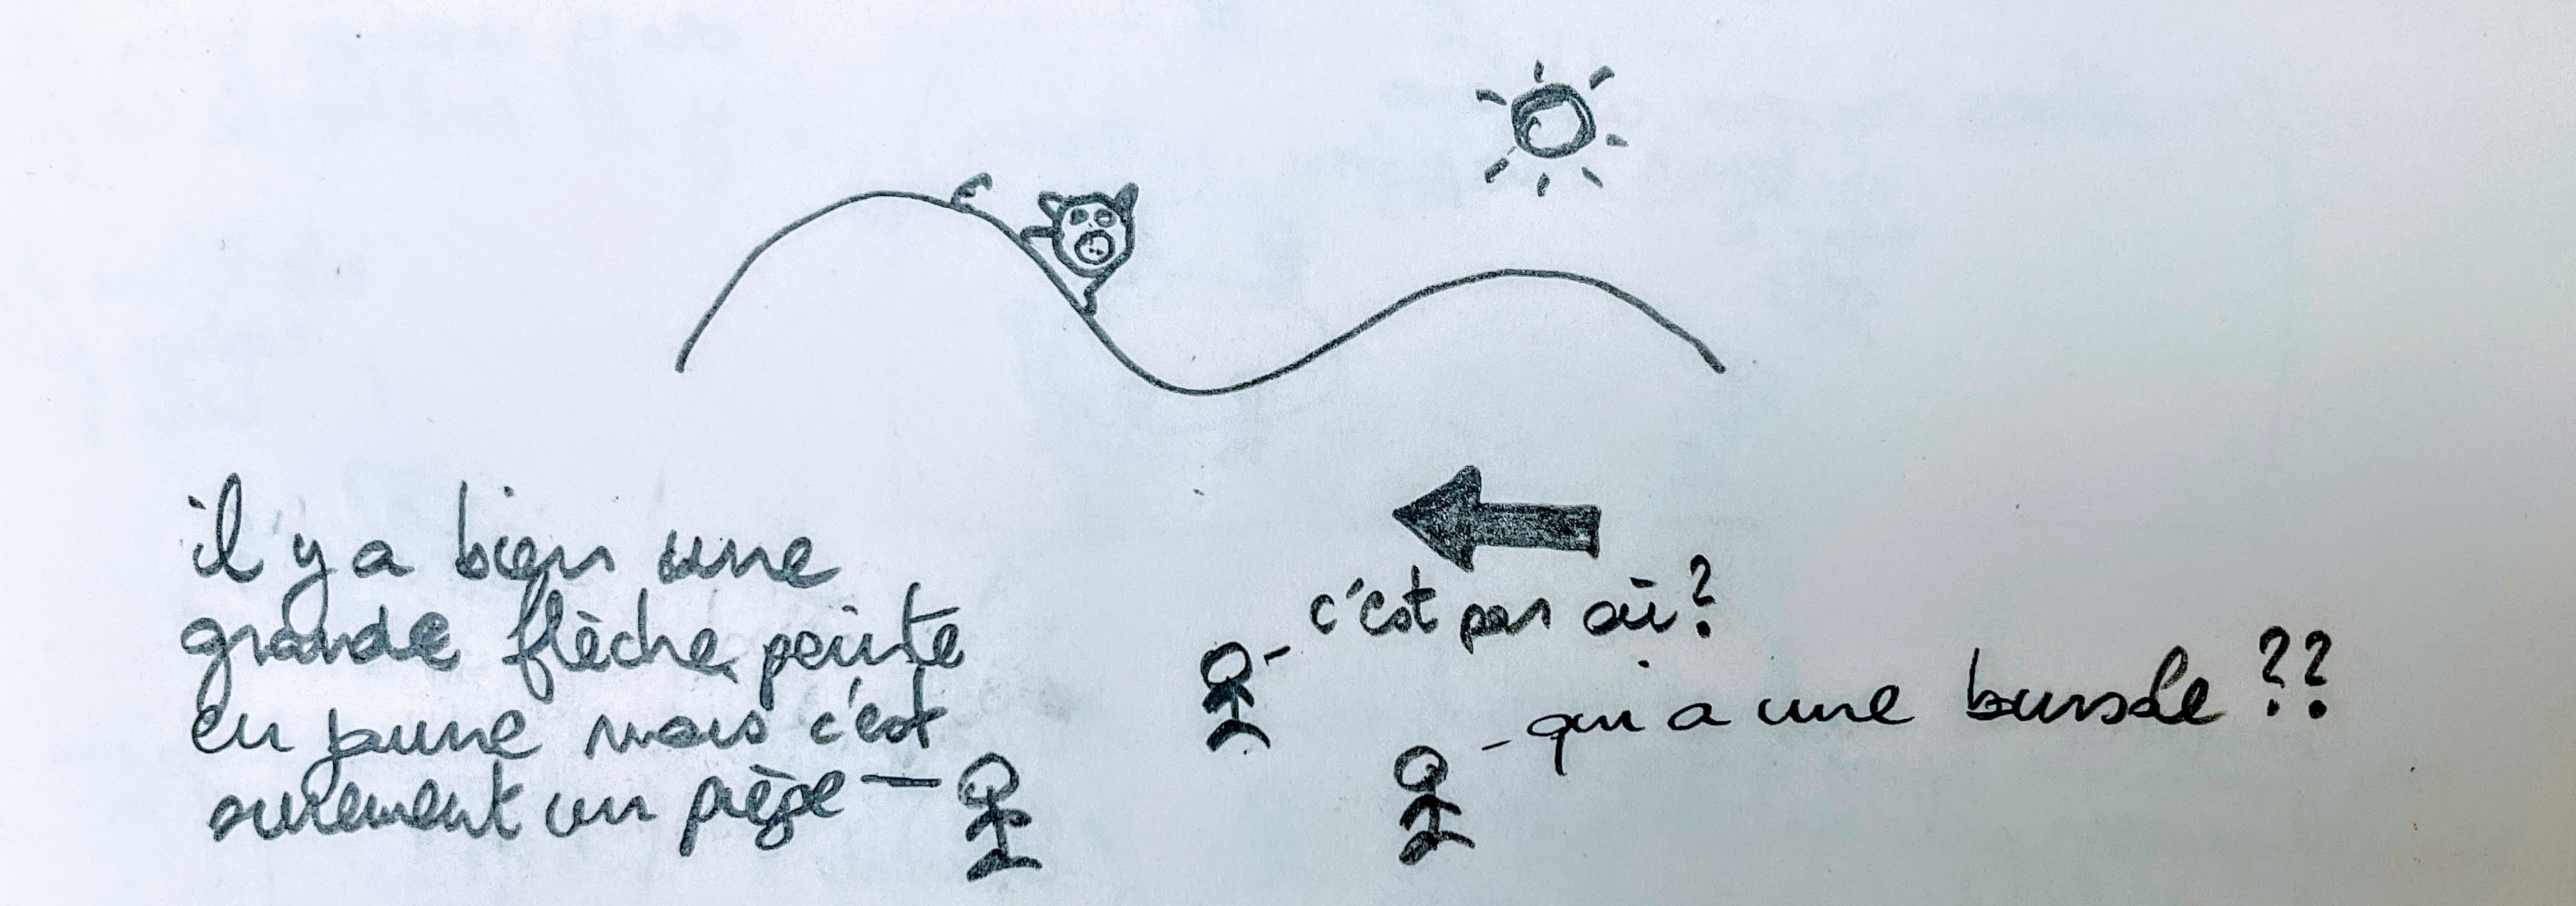 il y a bien une
grande flèche peinte
en jaune mais c'est
surement un piège —
c'est par où?
- qui a une bussole ??